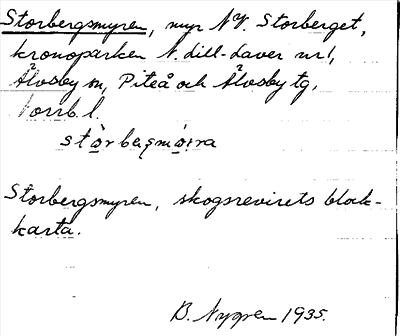 Storbergsmyren, myr NV. Storberget,
kronoparken N. Lill-Laver nr 1,
Älvsby sn, Piteå och Älvsby tg,
Norrb. l.
stòrbeṣmòrra
Storbergsmyren, skogsrevirets block-
karta.
B. Nygren 1935.